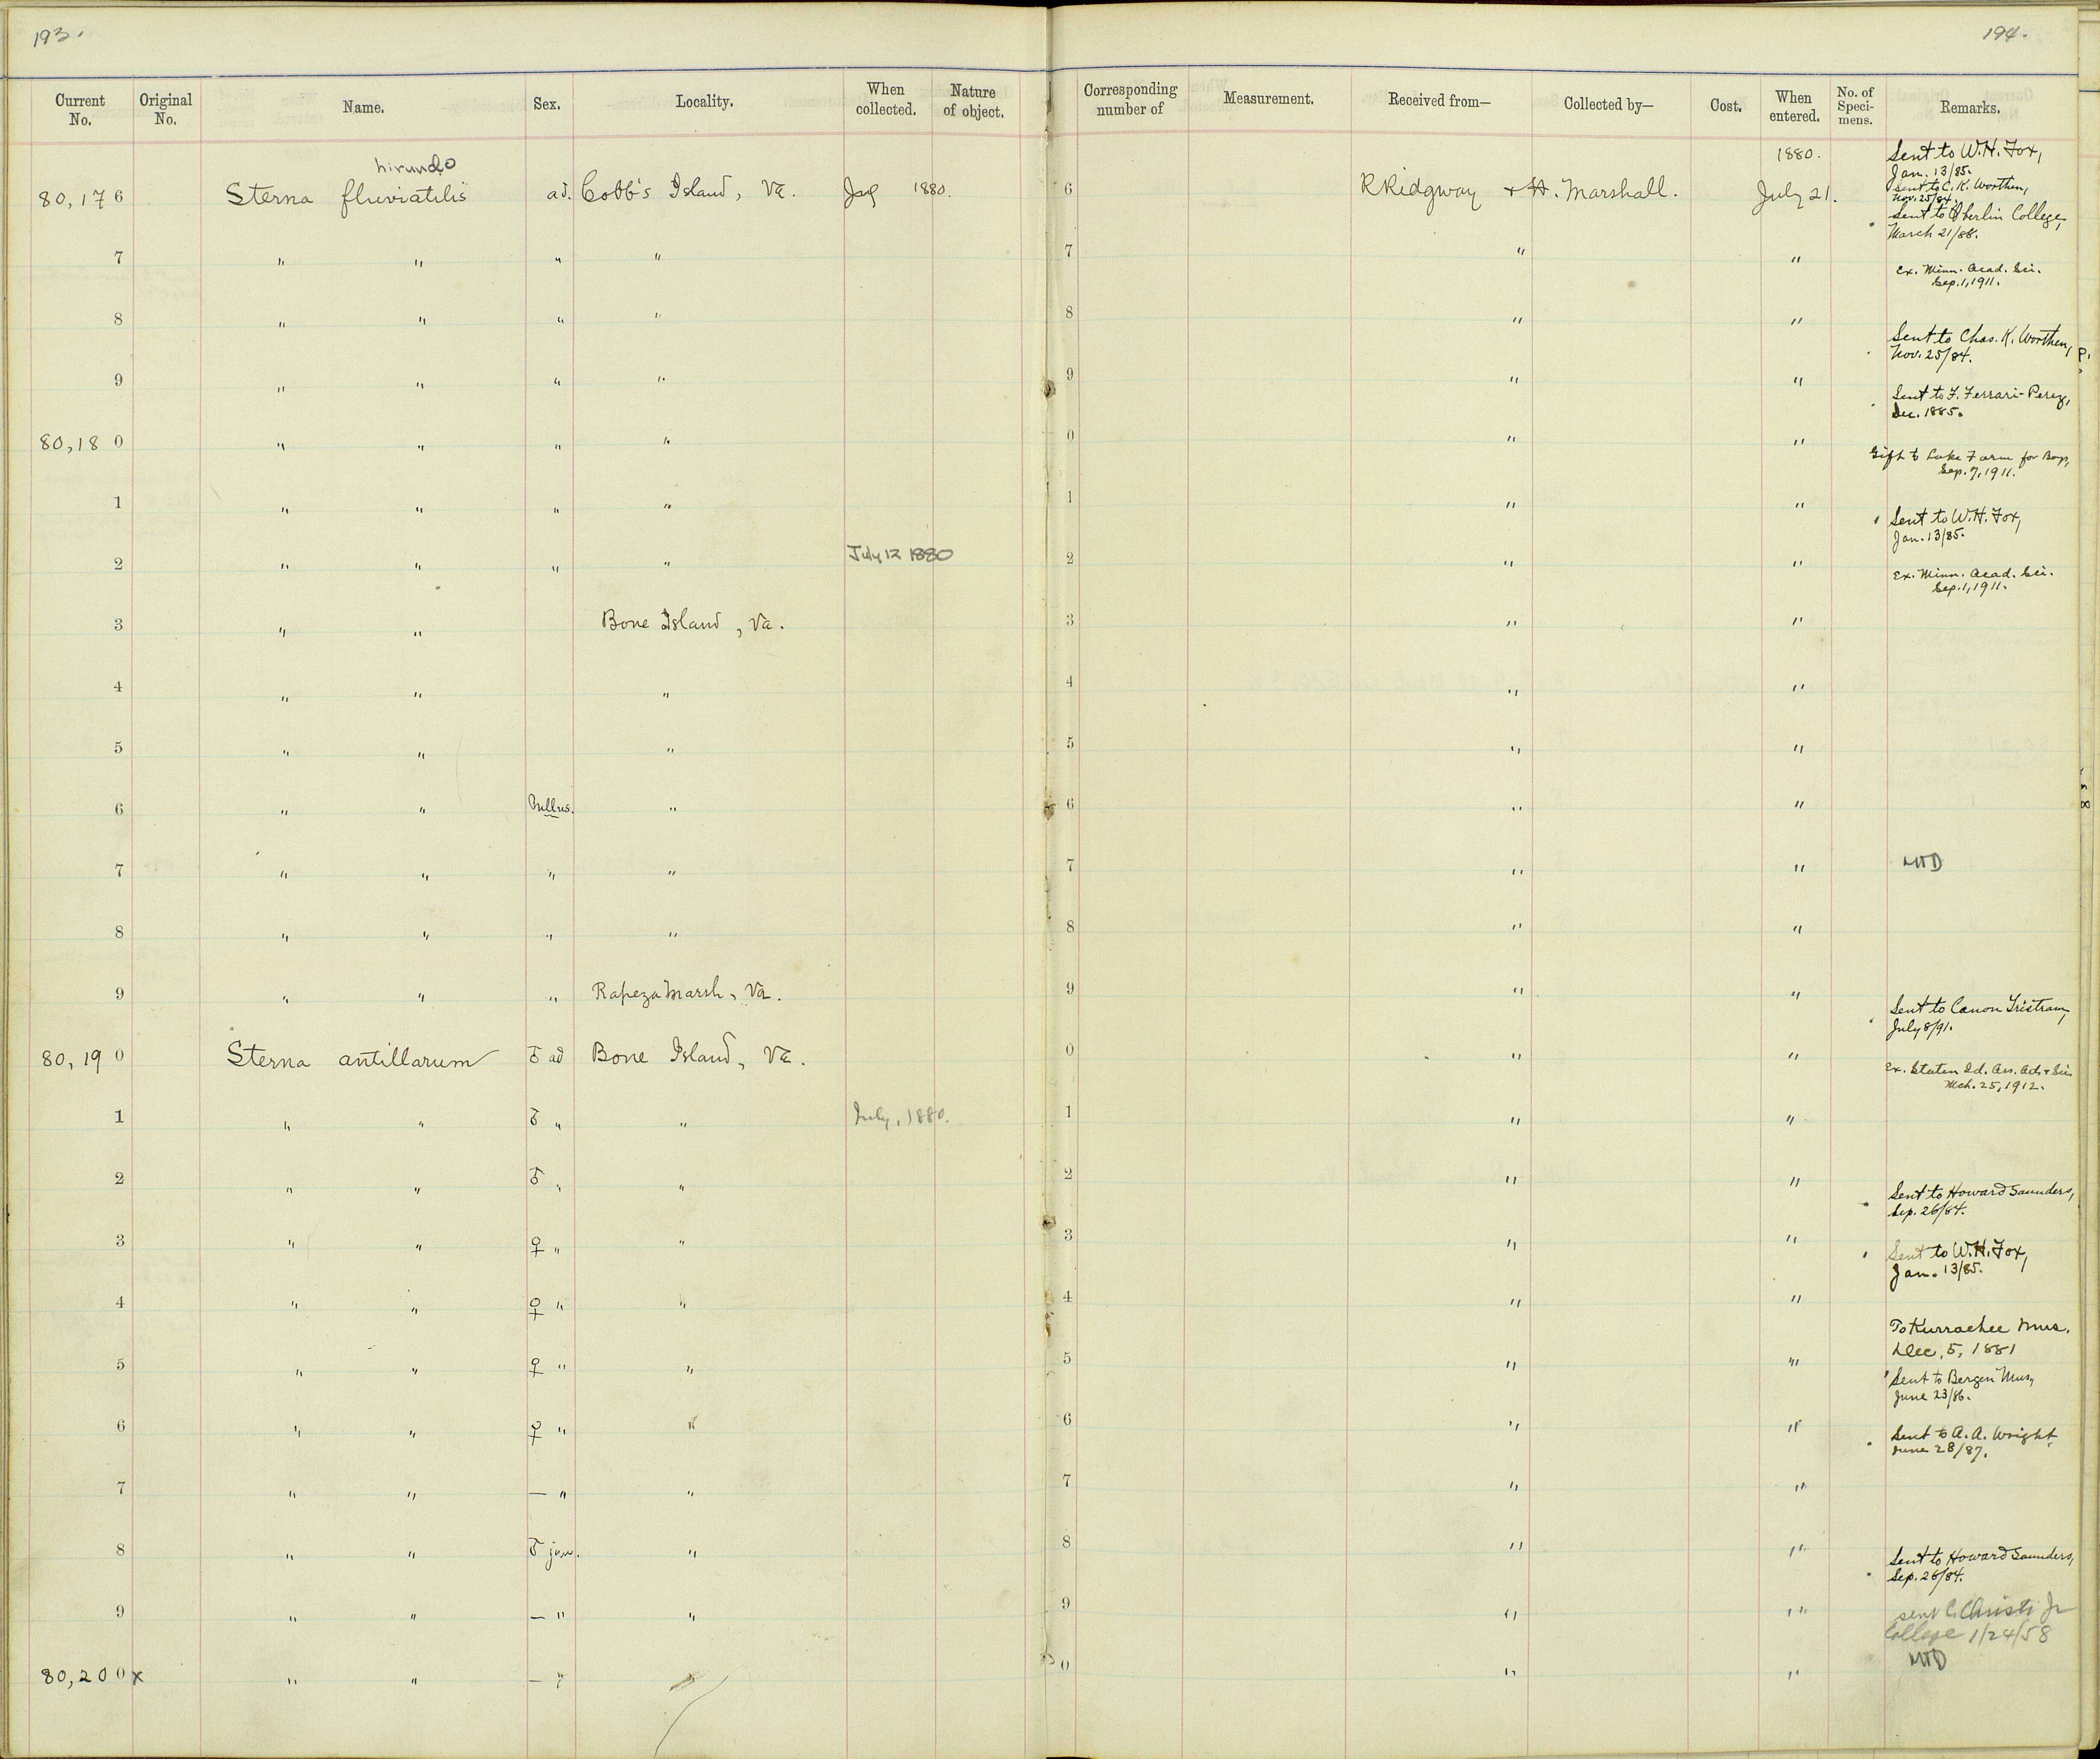 193. 194.
Current No. Original No. Name. Sex. Locality. When collected. Nature of object. Corresponding number of Measurement. Received from— Collected by— Cost. When entered. No. of Specimens. Remarks.
hirundo 1880. Sent to W.H. Fox,
Jan. 13/85.
80,176 Sterna fluviatilis ad. Cobb's Island, Va. July 1880. 6 R Ridgway & H. Marshall. July 21. Sent to C. K. Worthen,
Nov. 25/84.
Sent to Oberlin College,
March 21/88.
7 " " " " 7 " "
Ex. Minn. Acad. Sci.
Sep. 1, 1911.
8 " " " " 8 " "
Sent to Chas. K. Worthen,
Nov. 25/84.
9 " " " " 9 " "
Sent to F. Ferrari-Perez,
Dec. 1885.
80,180 " " " " 0 " "
Gift to Lake Farm for Boys,
Sep. 7, 1911.
1 " " " " 1 " "
Sent to W.H. Fox,
Jan. 13/85.
2 " " " " July 12 1880 2 " "
Ex. Minn. Acad. Sci.
Sep. 1, 1911.
3 " " Bone Island, Va. 3 " "
4 " " " 4 " "
5 " " " 5 " "
6 " " Pullus. " 6 " "
7 " " " " 7 " " MTD
8 " " " " 8 " "
9 " " " Marsh, Va. 9 " "
Sent to Canon Tristram,
July 8/91.
80,190 Sterna antillarum ♂ ad Bone Island, Va. 0 " "
Ex. Staten Id. Ass. Arts & Sci.
Mch. 25, 1912.
1 " " ♂ " " July, 1880. 1 " "
2 " " ♂ " " 2 " "
Sent to Howard Saunders,
Sep. 26/84.
3 " " ♀ " " 3 " "
Sent to W.H. Fox,
Jan. 13/85.
4 " " ♀ " " 4 " "
To Kurrachee Mus.
Dec, 5, 1881
5 " " ♀ " " 5 " "
Sent to Bergen Mus,
June 23/86.
6 " " ♀ " " 6 " "
Sent to A. A. Wright,
June 28/87.
7 " " — " " 7 " "
8 " " ♂ juv. " 8 " "
Sent to Howard Saunders,
Sep. 26/84.
9 " " — " " 9 " "
sent C. Christi Jr
College 1/24/58
80,200 x " " — " " 0 " " MTD